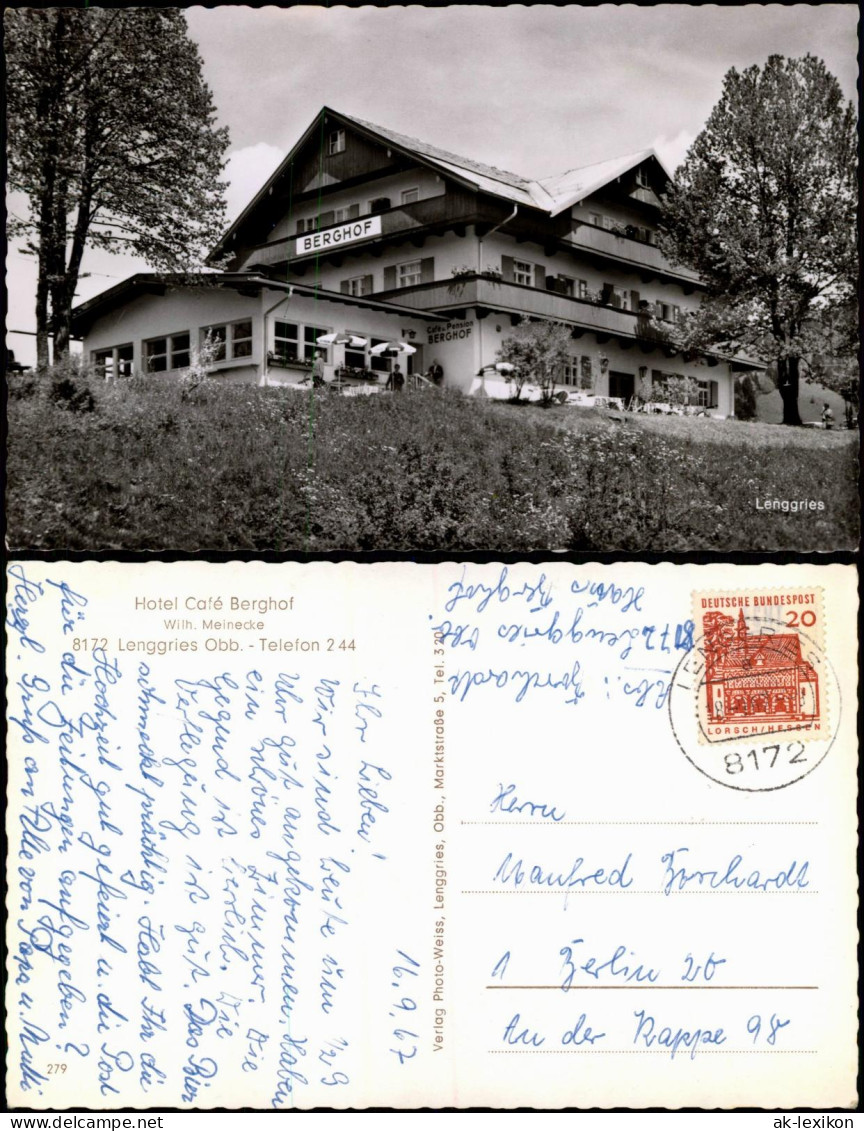 BERGHOF
Café u. Pension
BERGHOF
Lenggries
Hotel Café Berghof
Wilh. Meinecke
8172 Lenggries Obb. - Telefon 2 44
16.9.67
Ihr Lieben!
Wir sind heute um 1/2 9
Uhr gut angekommen. Haben
ein schönes Zimmer. Die
Gegend ist herrlich. Die
Verpflegung ist gut. Das Bier
schmeckt prächtig. Habt Ihr die
Hochzeit gut gefeiert u. die Post
für die Zeitungen aufgegeben?
Herzl. Gruß an Alle von Papa u. Mutti
279
Verlag Photo-Weiss, Lenggries, Obb., Marktstraße 5, Tel. 3 20
Abs.: Borchardt
8172 Lenggries Obb.
Haus Berghof
DEUTSCHE BUNDESPOST
20
LORSCH/HESSEN
LENGGRIES
8172
Herrn
Manfred Borchardt
1 Berlin 20
An der Kappe 98
akpool.de
ak-lexikon